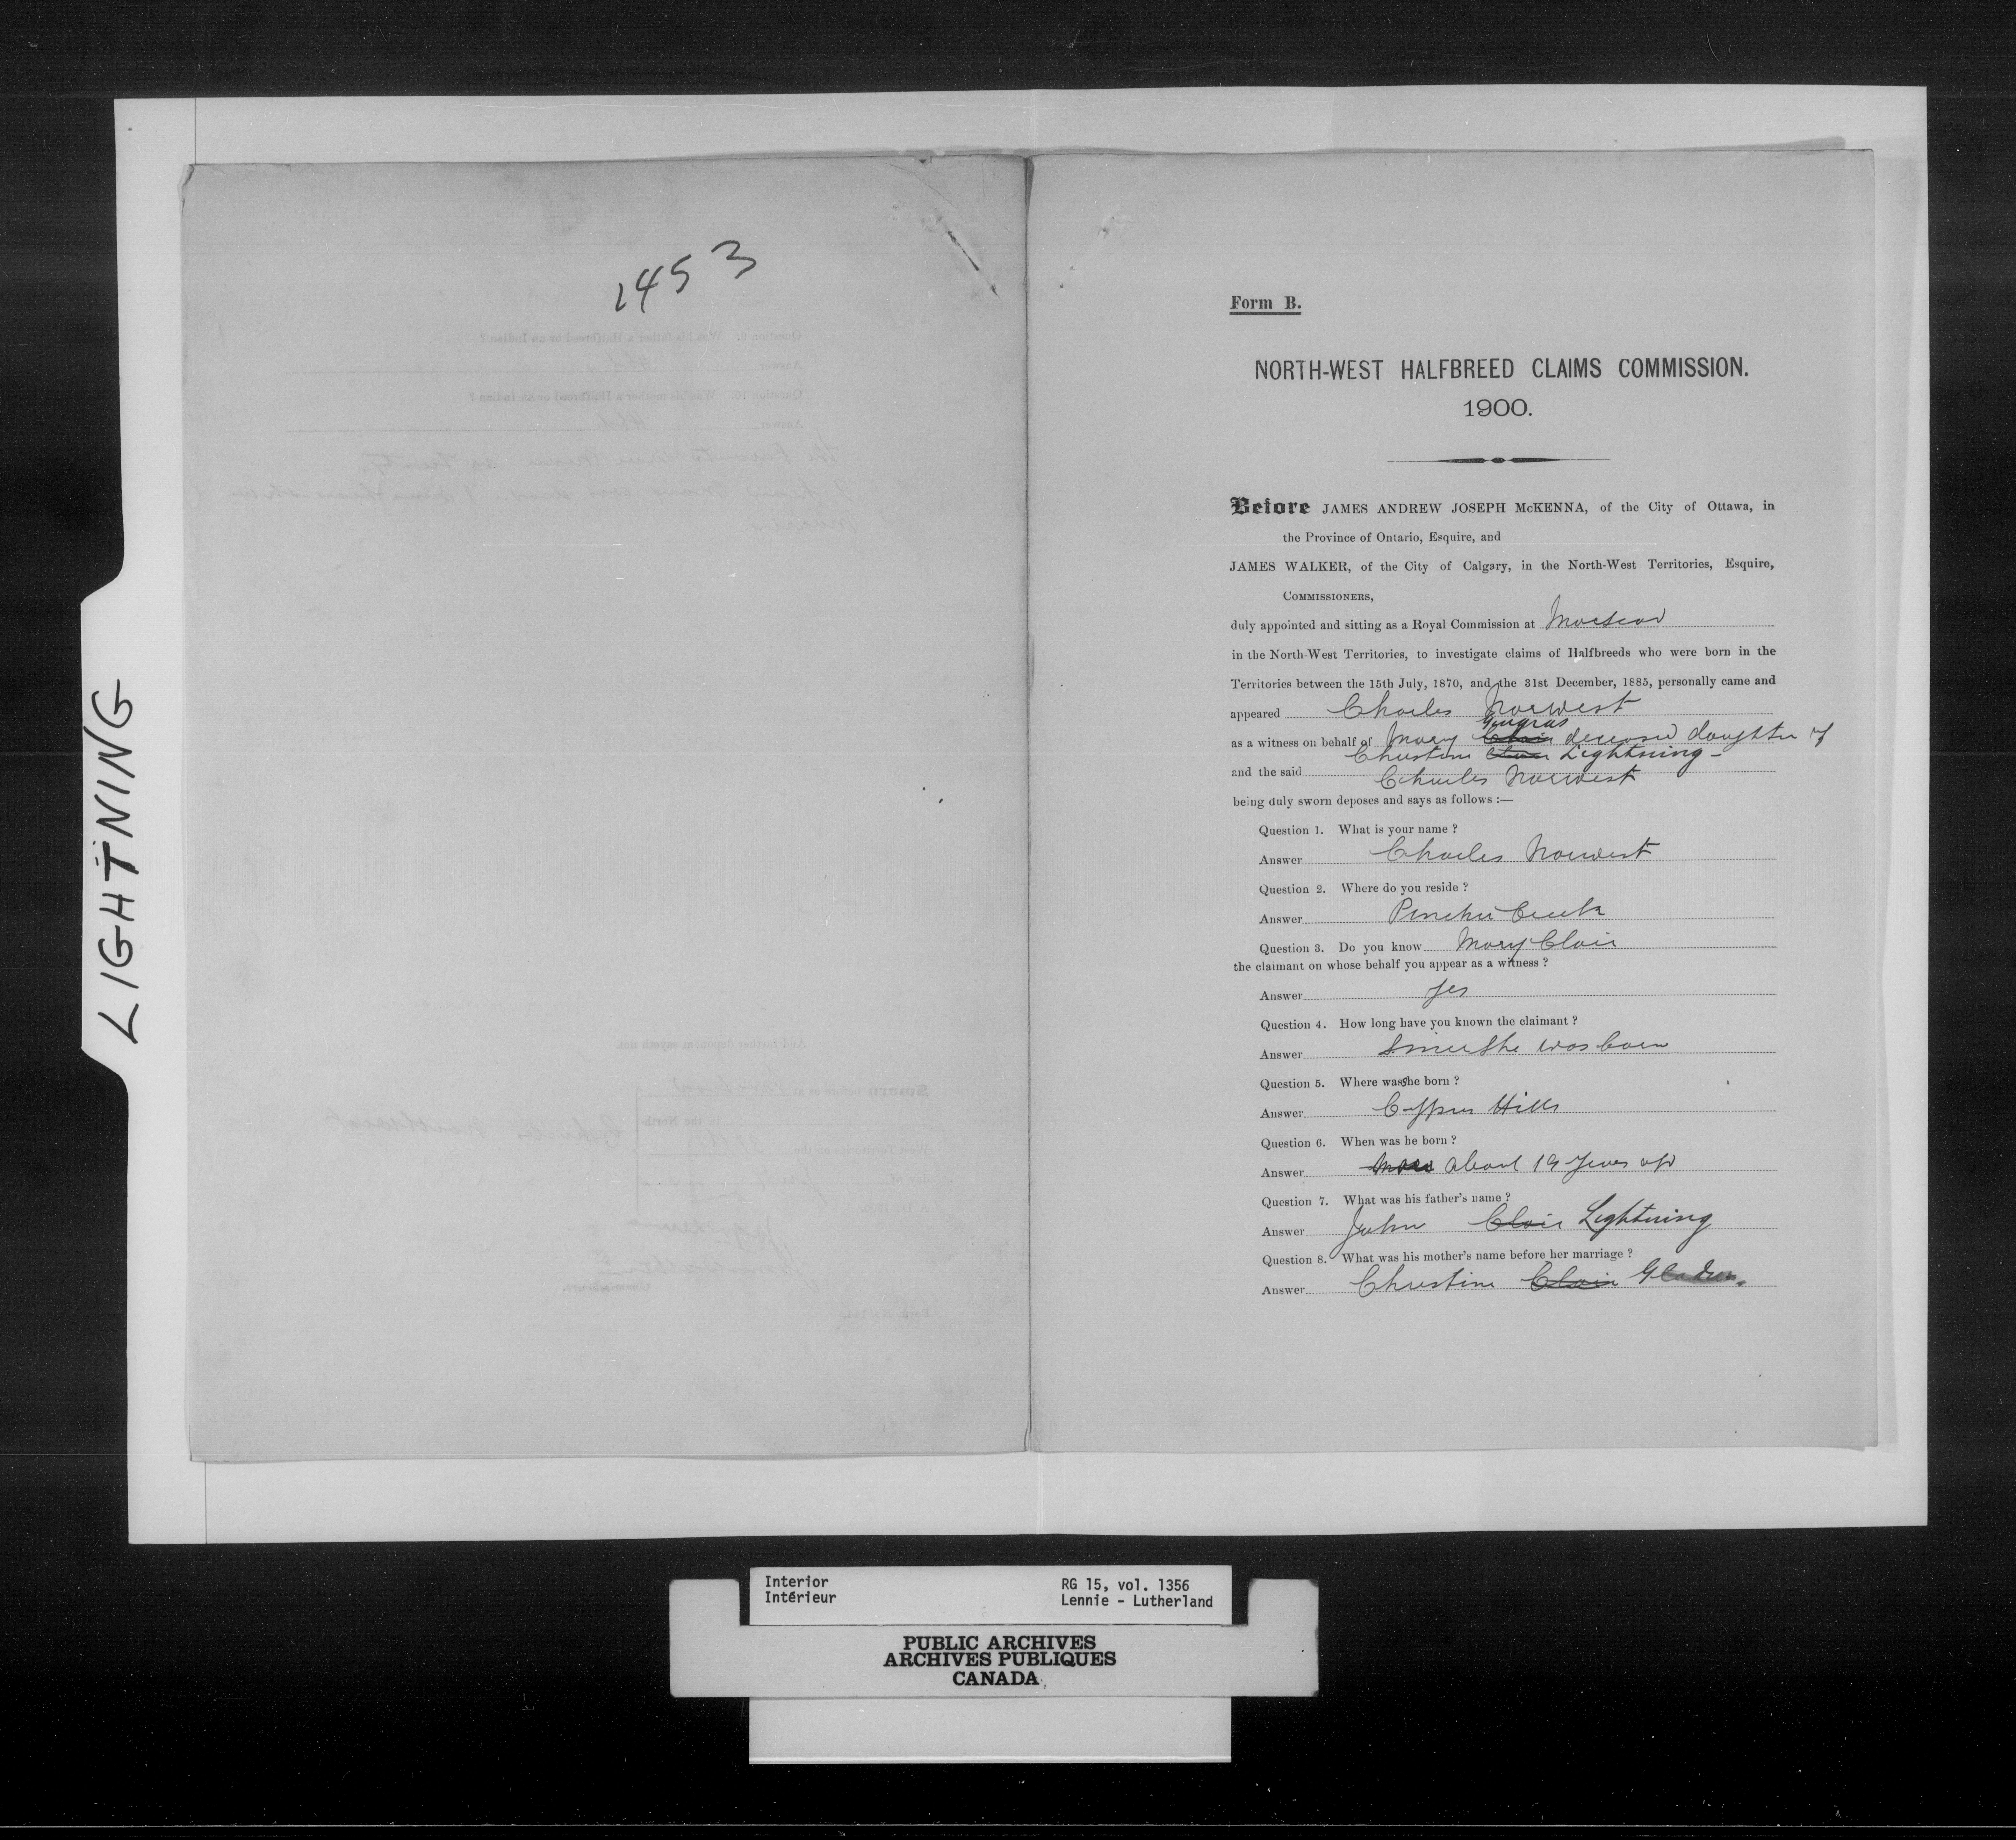 LIGHTNING
1453
Form B.
NORTH-WEST HALFBREED CLAIMS COMMISSION.
1900.
Before JAMES ANDREW JOSEPH McKENNA, of the City of Ottawa, in
the Province of Ontario, Esquire, and
JAMES WALKER, of the City of Calgary, in the North-West Territories, Esquire,
COMMISSIONERS,
duly appointed and sitting as a Royal Commission at Macleod
in the North-West Territories, to investigate claims of Halfbreeds who were born in the
Territories between the 15th July, 1870, and the 31st December, 1885, personally came and
appeared Charles Norwest
Gingras
as a witness on behalf of Mary Clair deceased daughter of
Christine Clair Lightning -
and the said Charles Norwest
being duly sworn deposes and says as follows :—
Question 1. What is your name ?
Answer Charles Norwest
Question 2. Where do you reside ?
Answer Pincher Creek
Question 3. Do you know Mary Clair
the claimant on whose behalf you appear as a witness ?
Answer Yes
Question 4. How long have you known the claimant ?
Answer Since she was born
Question 5. Where was she born ?
Answer Cypress Hills
Question 6. When was he born ?
Answer about 19 years ago
Question 7. What was his father's name ?
Answer John Clair Lightning
Question 8. What was his mother's name before her marriage ?
Answer Christine Clair
Interior
Intérieur
RG 15, vol. 1356
Lennie - Lutherland
PUBLIC ARCHIVES
ARCHIVES PUBLIQUES
CANADA